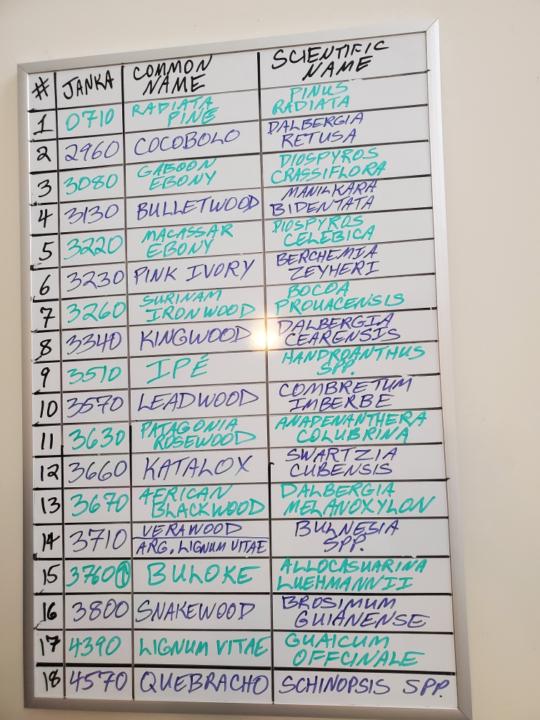 # JANKA COMMON NAME SCIENTIFIC NAME
1 0710 RADIATA PINE PINUS RADIATA
2 2960 COCOBOLO DALBERGIA RETUSA
3 3080 GABOON EBONY DIOSPYROS CRASSIFLORA
4 3130 BULLETWOOD MANILKARA BIDENTATA
5 3220 MACASSAR EBONY DIOSPYROS CELEBICA
6 3230 PINK IVORY BERCHEMIA ZEYHERI
7 3260 SURINAM IRONWOOD BOCOA PROUACENSIS
8 3340 KINGWOOD DALBERGIA CEARENSIS
9 3510 IPÉ HANDROANTHUS SPP.
10 3570 LEADWOOD COMBRETUM IMBERBE
11 3630 PATAGONIA ROSEWOOD ANADENANTHERA COLUBRINA
12 3660 KATALOX SWARTZIA CUBENSIS
13 3670 AFRICAN BLACKWOOD DALBERGIA MELANOXYLON
14 3710 VERAWOOD ARG. LIGNUM VITAE BULNESIA SPP.
15 3760 BULOKE ALLOCASUARINA LUEHMANNII
16 3800 SNAKEWOOD BROSIMUM GUIANENSE
17 4390 LIGNUM VITAE GUAICUM OFFCINALE
18 4570 QUEBRACHO SCHINOPSIS SPP.